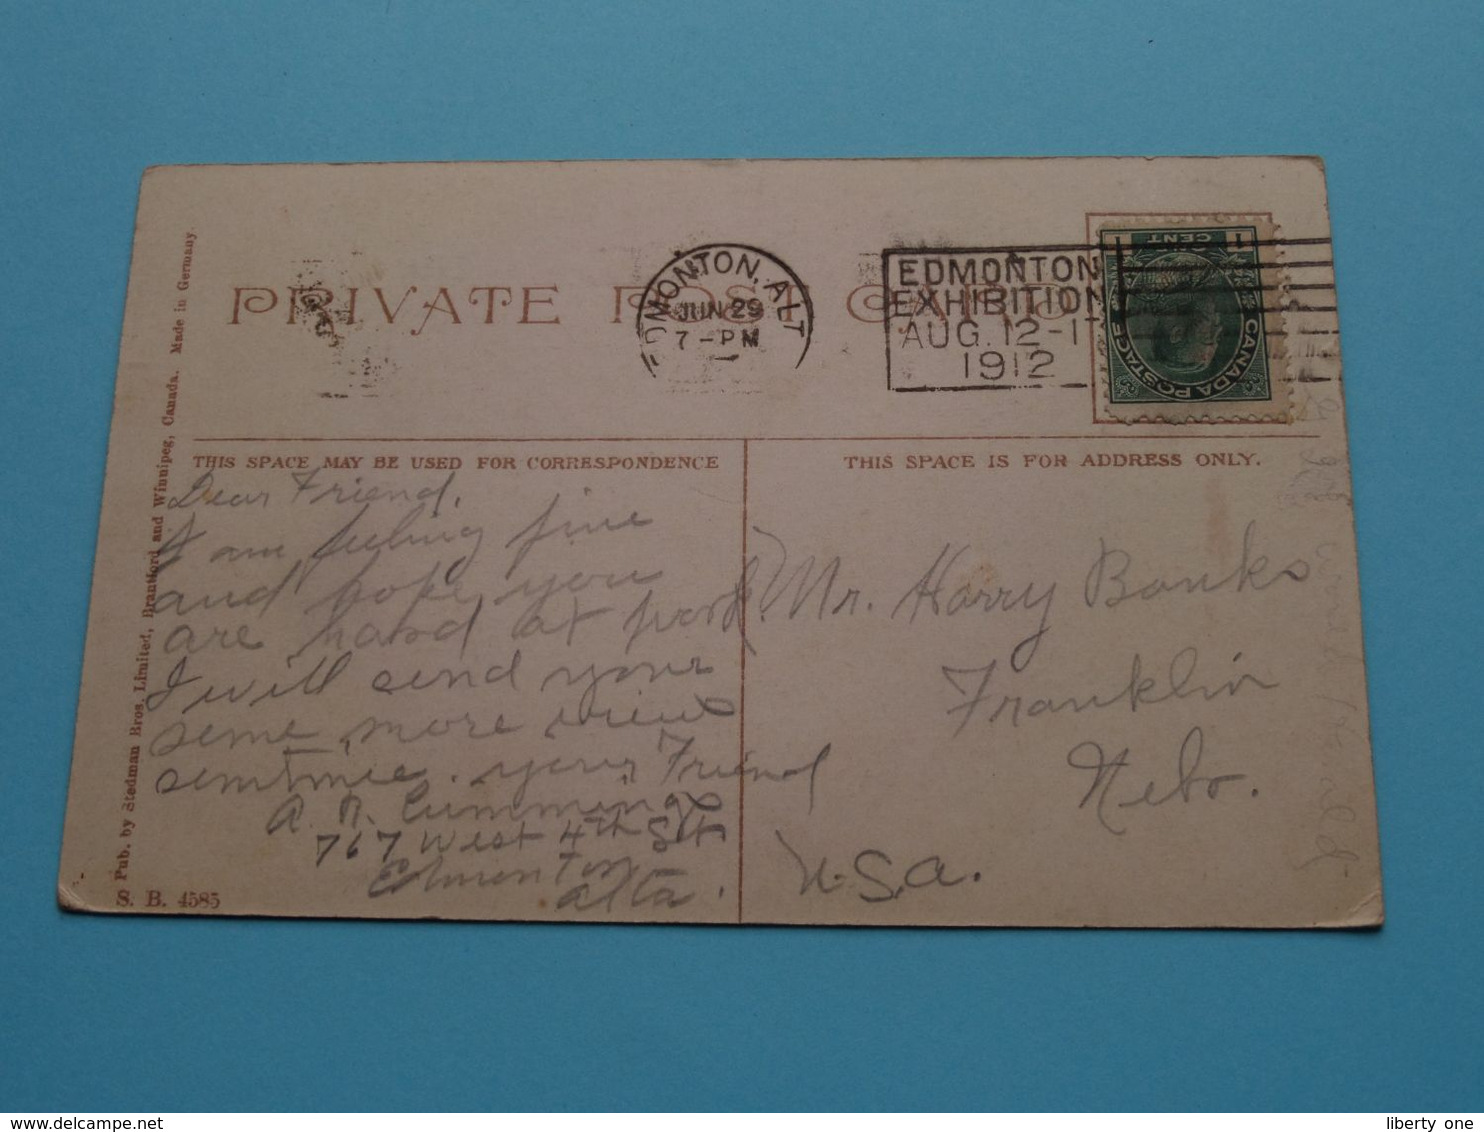 PRIVATE POST CARD
EDMONTON, ALT
JUN 29
7-PM
EDMONTON
EXHIBITION
AUG. 12-17
1912
1 CENT 1
CANADA POSTAGE
THIS SPACE MAY BE USED FOR CORRESPONDENCE
THIS SPACE IS FOR ADDRESS ONLY.
Dear Friend,
I am feeling fine
and hope you
are hard at
I will send your
some more views
. your Friend
A. N. Cummings
767 West 4th St
Edmonton
Alta.
Mr. Harry Banks
Franklin
Nebr.
U.S.A.
Pub. by Stedman Bros. Limited, Brantford and Winnipeg, Canada. Made in Germany.
S. B. 4585
liberty one